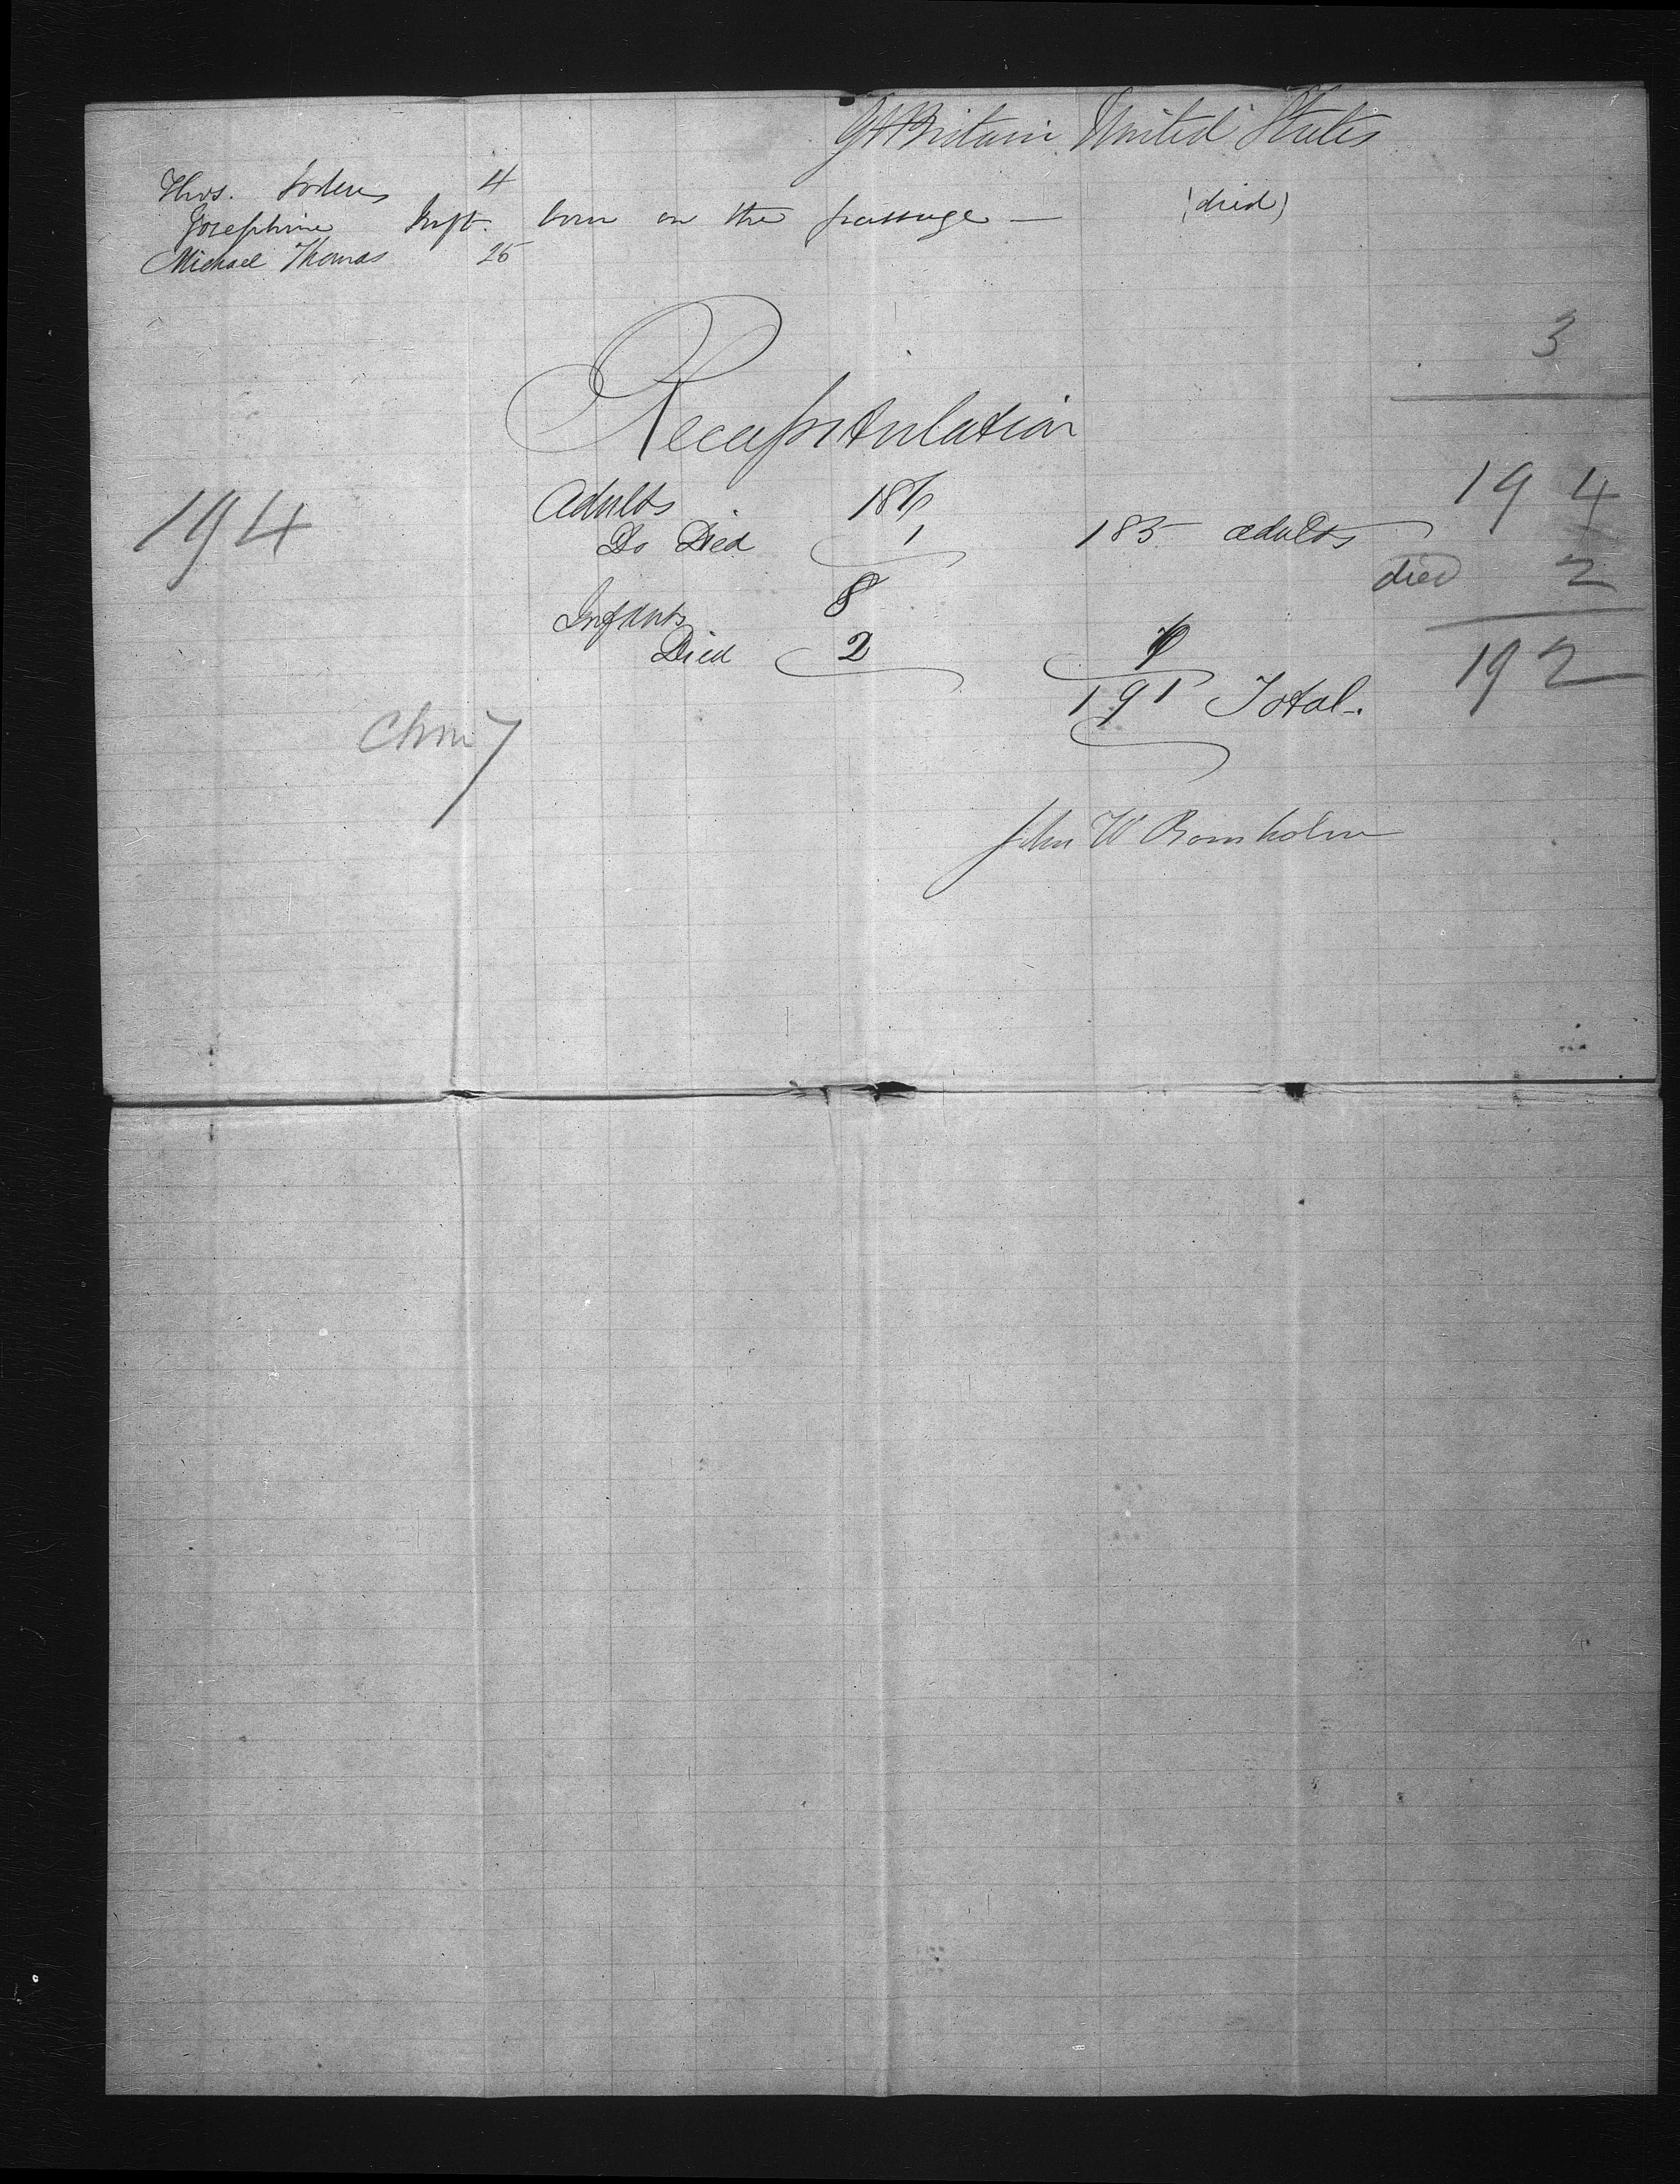 Gt Britain United States
Thos. 4
Josephine Inft. born on the passage — (died)
Michael Thomas 25
3
Recapitulation
194 Adults 186 194
Do Died 1 185 adults
died 2
Infants 8
Died 2 6
191 Total. 192
John W Bornholm